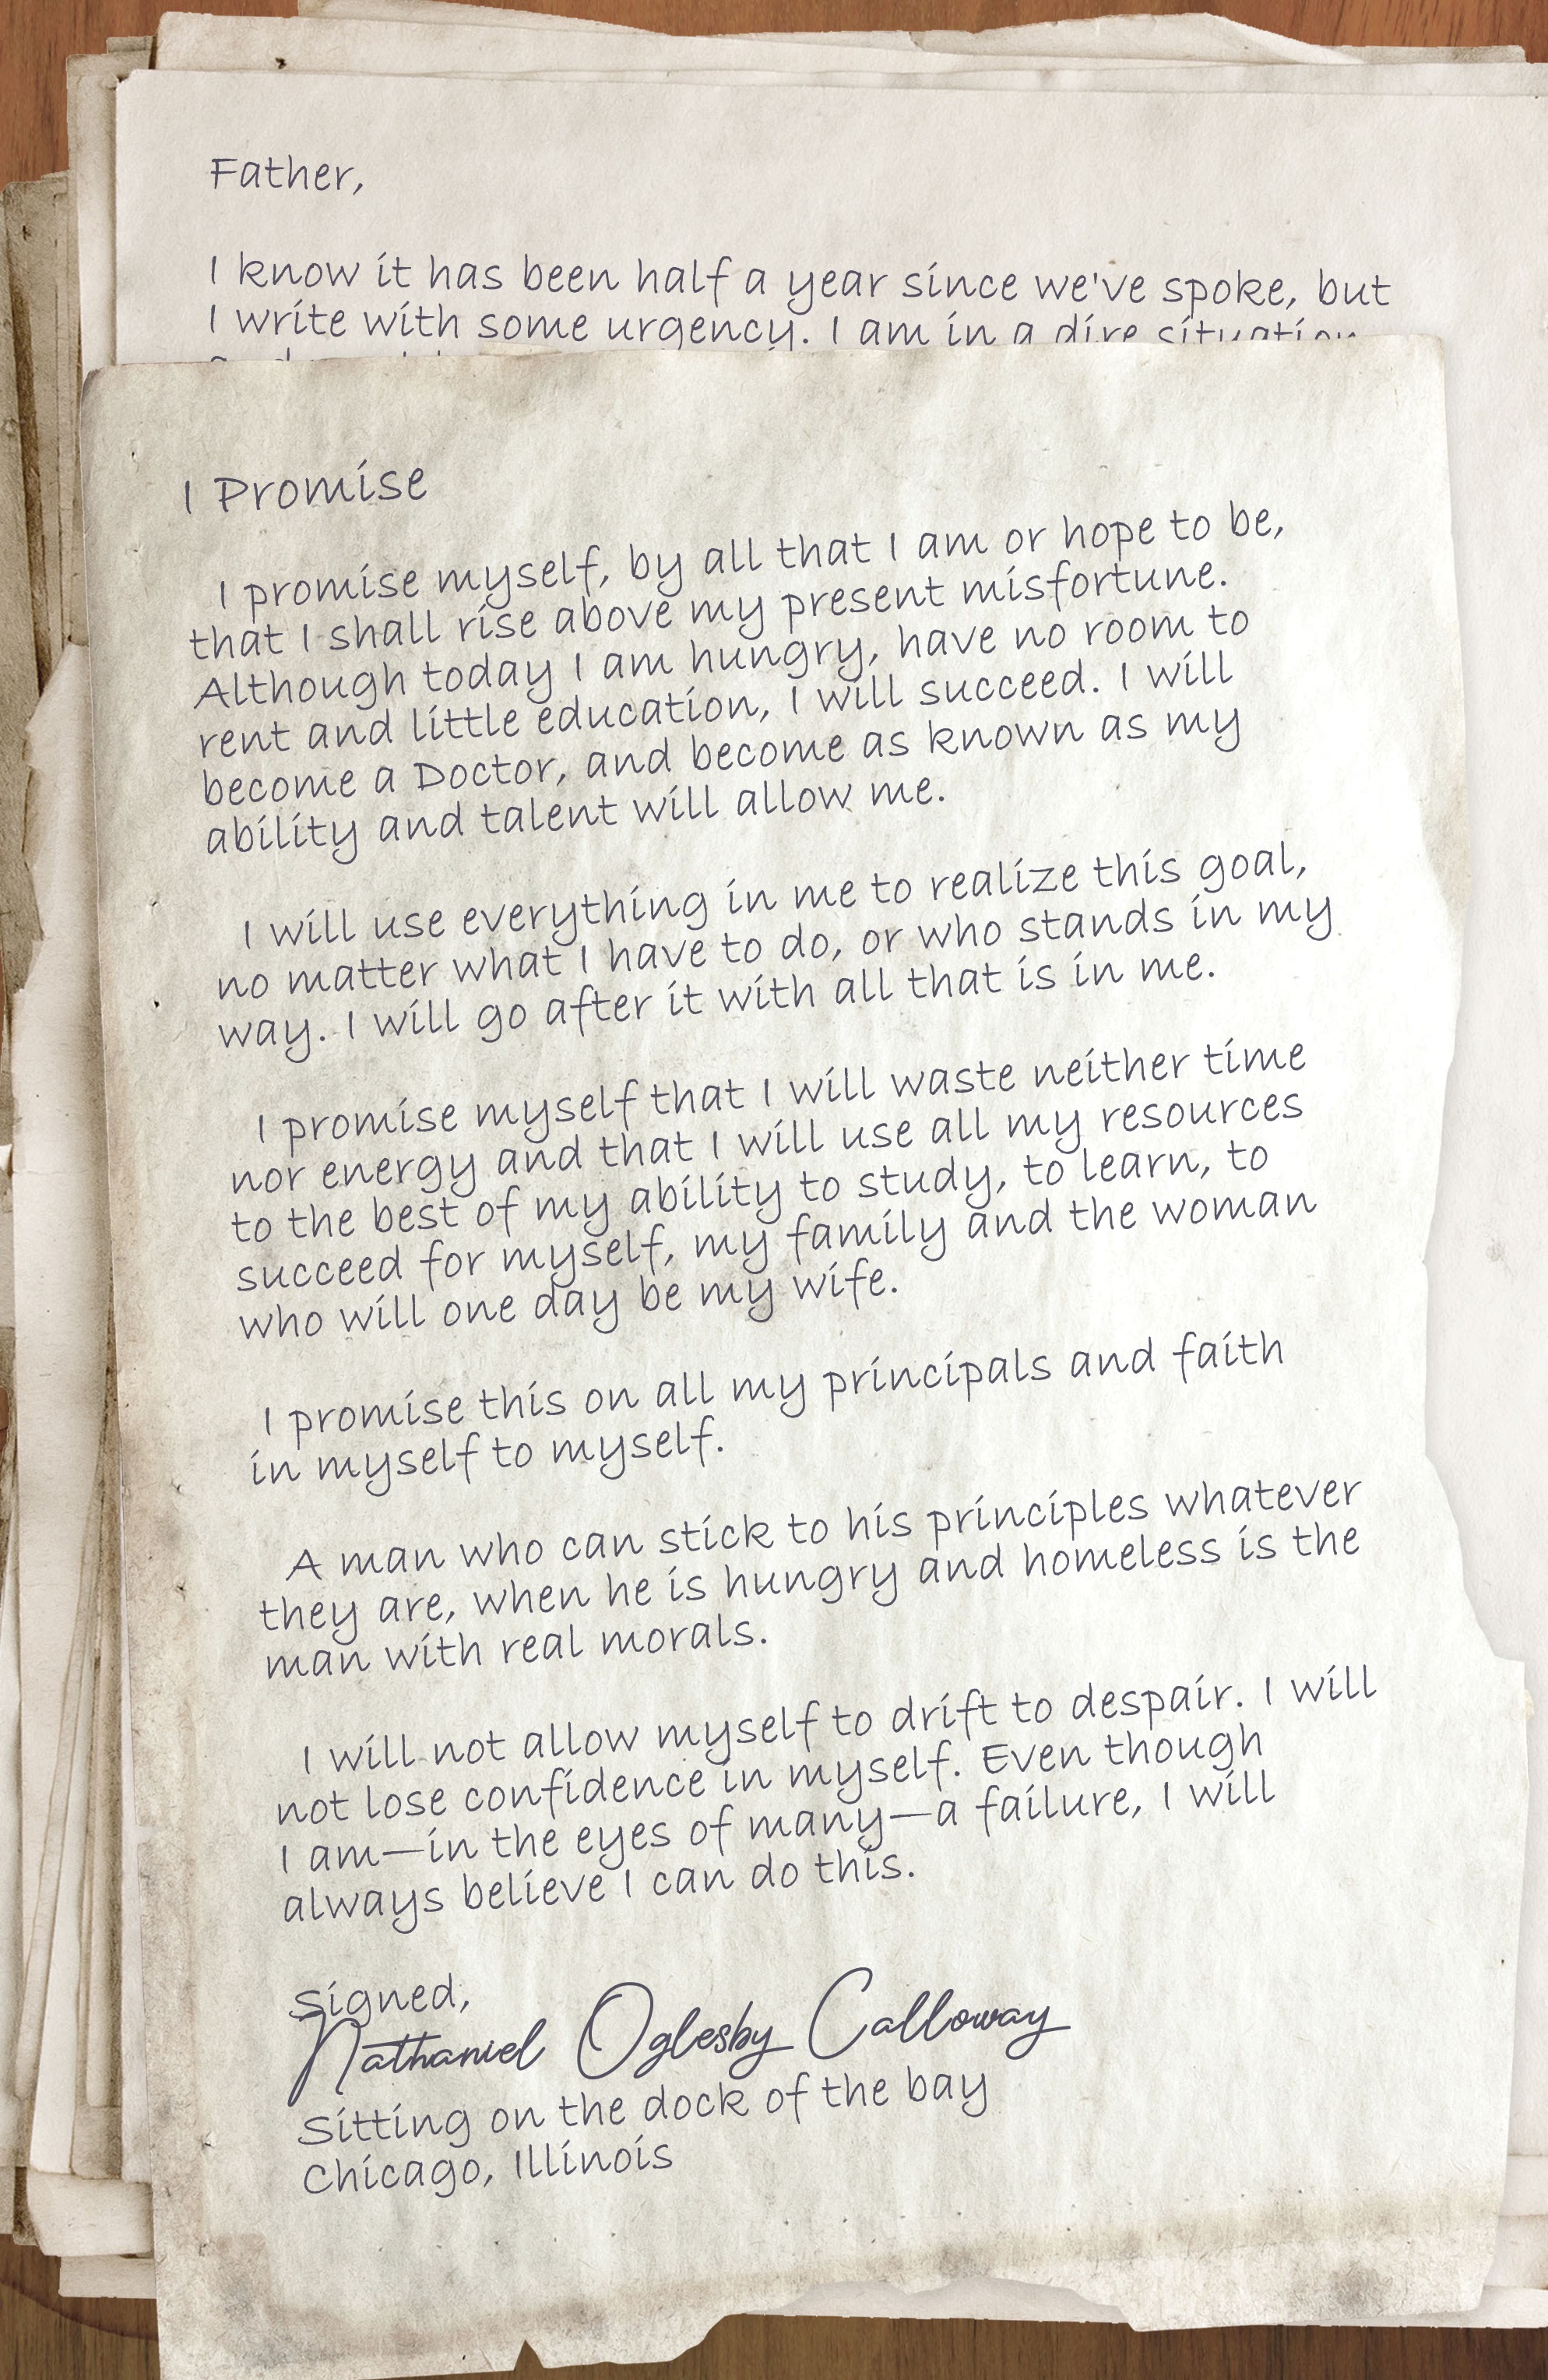 Father,
I know it has been half a year since we've spoke, but
I write with some urgency. I am in a dire situation
I Promise
I promise myself, by all that I am or hope to be,
that I shall rise above my present misfortune.
Although today I am hungry, have no room to
rent and little education, I will succeed. I will
become a Doctor, and become as known as my
ability and talent will allow me.
I will use everything in me to realize this goal,
no matter what I have to do, or who stands in my
way. I will go after it with all that is in me.
I promise myself that I will waste neither time
nor energy and that I will use all my resources
to the best of my ability to study, to learn, to
succeed for myself, my family and the woman
who will one day be my wife.
I promise this on all my principals and faith
in myself to myself.
A man who can stick to his principles whatever
they are, when he is hungry and homeless is the
man with real morals.
I will not allow myself to drift to despair. I will
not lose confidence in myself. Even though
I am—in the eyes of many—a failure, I will
always believe I can do this.
signed,
Nathaniel Oglesby Calloway
Sitting on the dock of the bay
Chicago, Illinois